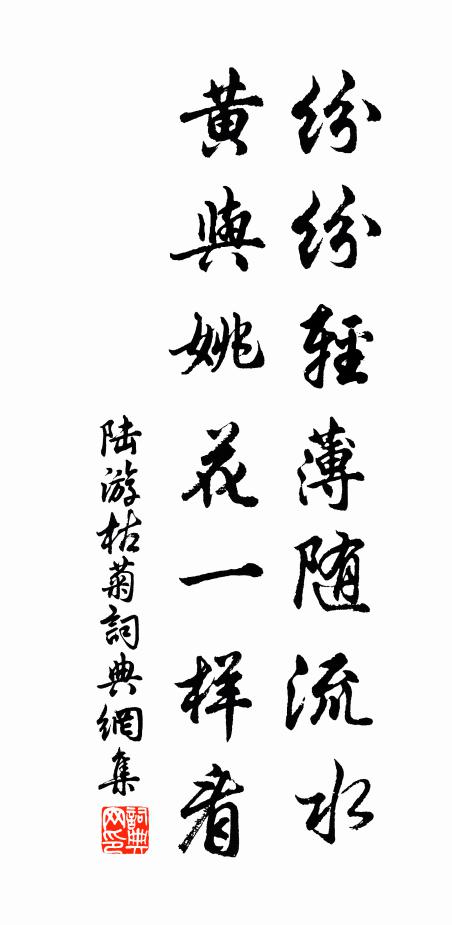 纷纷輕薄随流水
黄與姚花一样看
陆游枯菊詞典網集
詞典网印